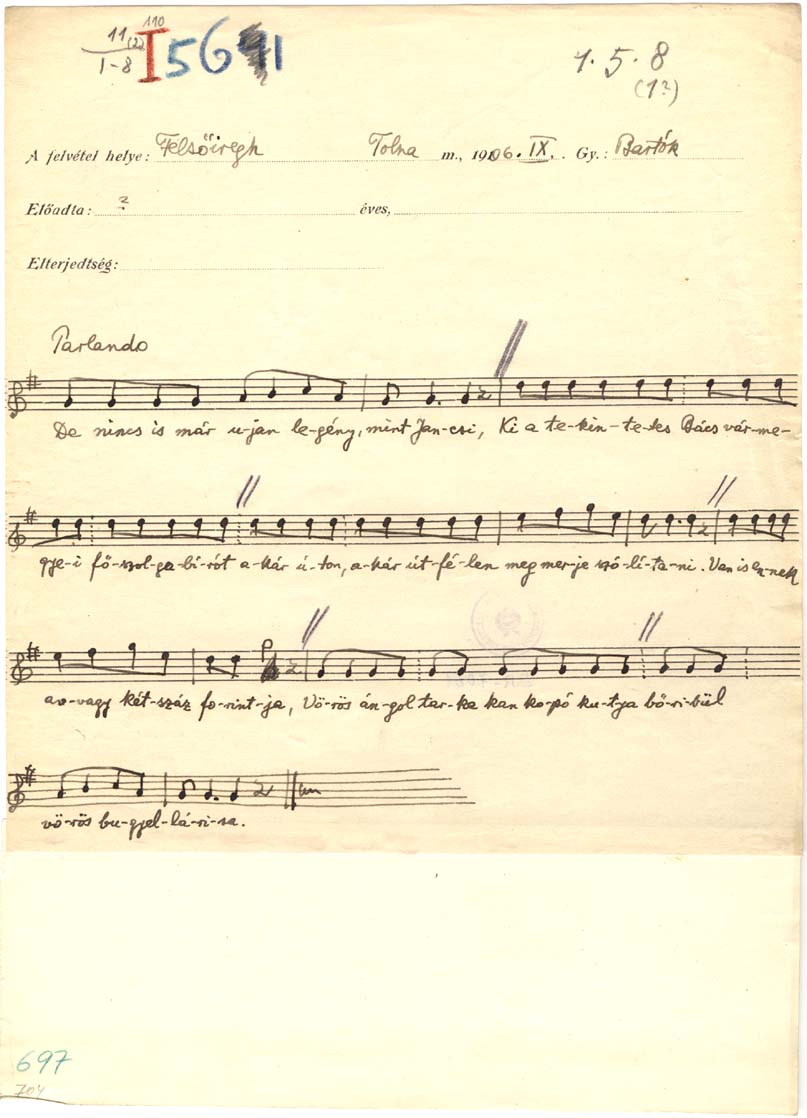 11 (2) 110
1-8 I 56 91
4. 5. 8
(1?)
A felvétel helye: Felsőiregh Tolna m., 1906. IX. Gy.: Bartók
Előadta: ? éves,
Elterjedtség:
Parlando
De nincs is már u-jan le-gény, mint Jan-csi, Ki a te-kin-te-tes Bács vár-me-
gye-i fő-szol-ga-bí-rót a-kár ú-ton, a-kár út-fé-len meg mer-je szó-lí-ta-ni. Van is en-nek
av-vagy két-száz fo-rint-ja, Vö-rös án-gol tar-ka kan ko-pó ku-tya bő-ri-bül
vö-rös bu-gyel-lá-ri-sa.
697
704